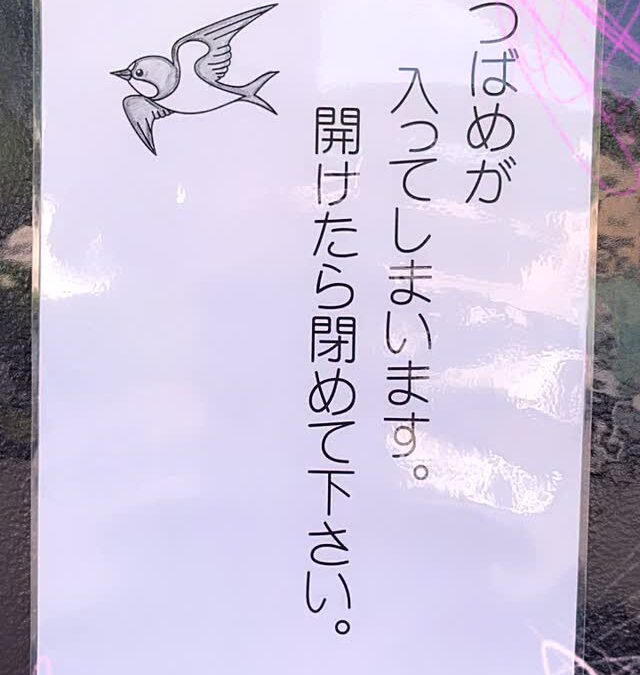 つばめが
入ってしまいます。
開けたら閉めて下さい。